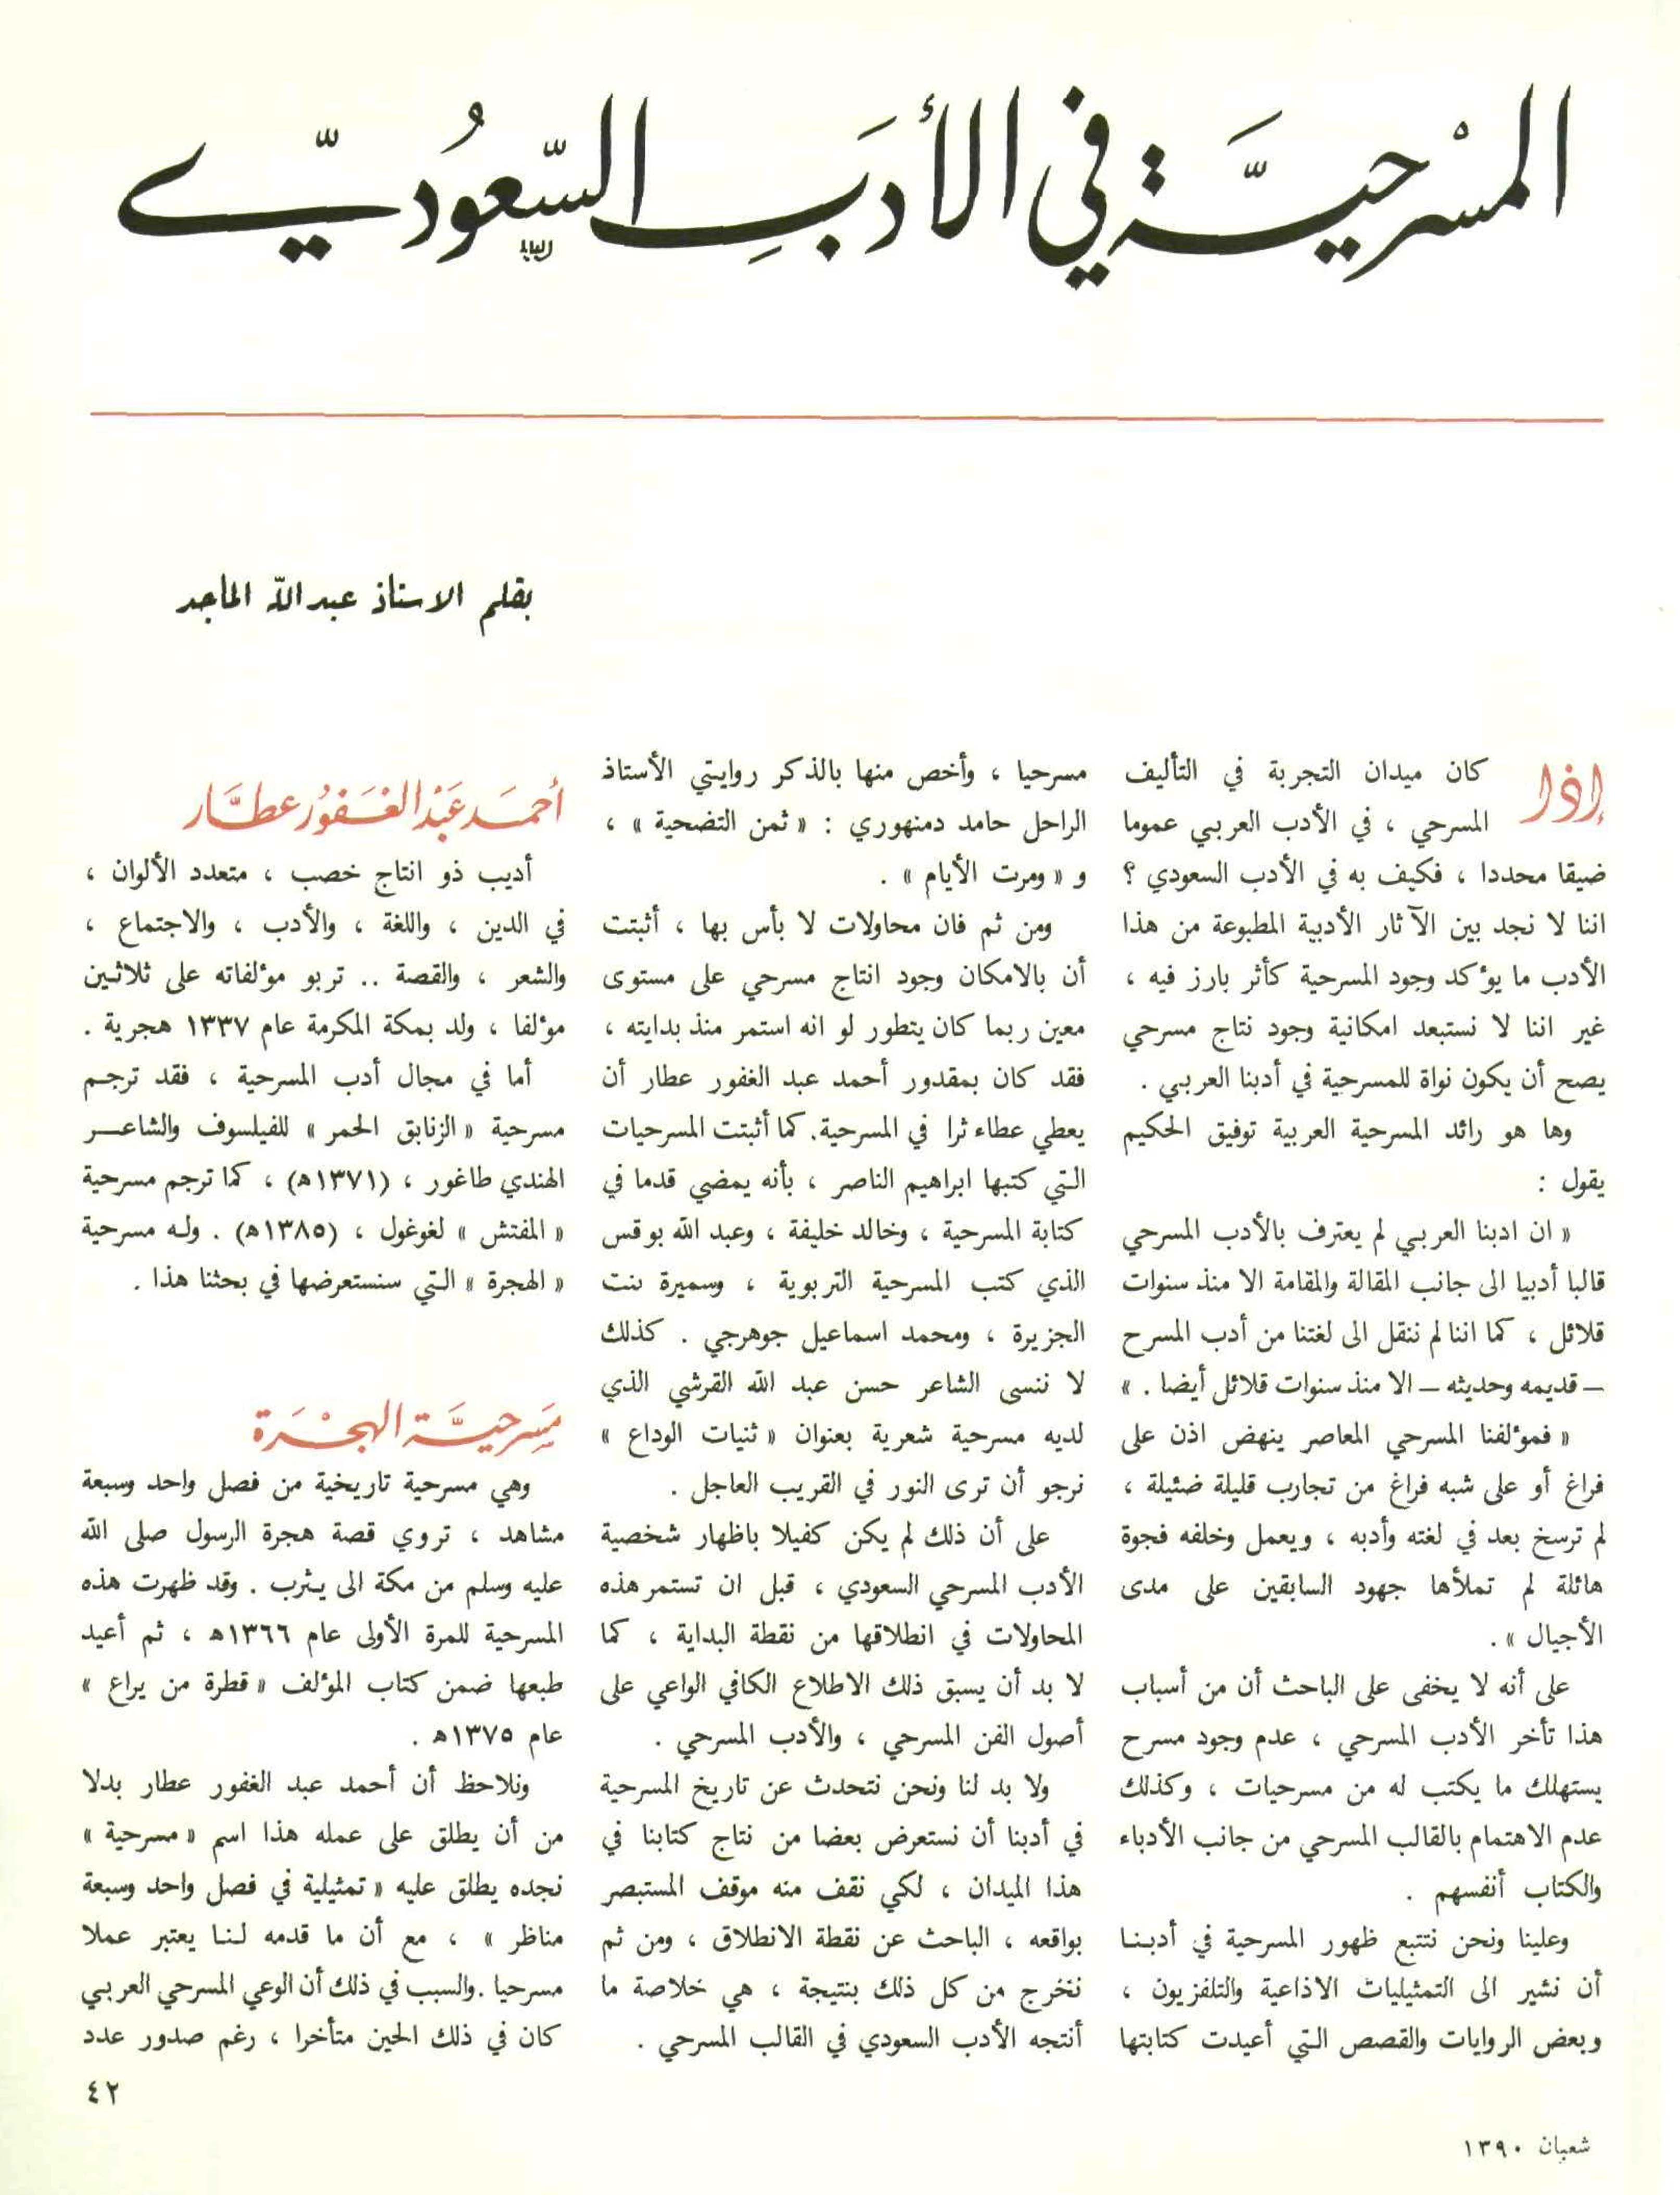 المسْرَحيَّة في الأدَبِ السّعُوديّ
بقلم الاستاذ عبد اللّه الماجد
إذا كان ميدان التجربة في التأليف
المسرحي ، في الأدب العربي عموما
ضيقا محددا ، فكيف به في الأدب السعودي ؟
اننا لا نجد بين الآثار الأدبية المطبوعة من هذا
الأدب ما يؤكد وجود المسرحية كأثر بارز فيه ،
غير اننا لا نستبعد امكانية وجود نتاج مسرحي
يصح أن يكون نواة للمسرحية في أدبنا العربي .
وها هو رائد المسرحية العربية توفيق الحكيم
يقول :
« ان ادبنا العربي لم يعترف بالأدب المسرحي
قالبا أدبيا الى جانب المقالة والمقامة الا منذ سنوات
قلائل ، كما اننا لم ننقل الى لغتنا من أدب المسرح
– قديمه وحديثه – الا منذ سنوات قلائل أيضا . »
« فمؤلفنا المسرحي المعاصر ينهض اذن على
فراغ أو على شبه فراغ من تجارب قليلة ضئيلة ،
لم ترسخ بعد في لغته وأدبه ، ويعمل وخلفه فجوة
هائلة لم تملأها جهود السابقين على مدى
الأجيال » .
على أنه لا يخفى على الباحث أن من أسباب
هذا تأخر الأدب المسرحي ، عدم وجود مسرح
يستهلك ما يكتب له من مسرحيات ، وكذلك
عدم الاهتمام بالقالب المسرحي من جانب الأدباء
والكتاب أنفسهم .
وعلينا ونحن نتتبع ظهور المسرحية في أدبنا
أن نشير الى التمثيليات الاذاعية والتلفزيون ،
وبعض الروايات والقصص التي أعيدت كتابتها
مسرحيا ، وأخص منها بالذكر روايتي الأستاذ
الراحل حامد دمنهوري : « ثمن التضحية » ،
و « ومرت الأيام » .
ومن ثم فان محاولات لا بأس بها ، أثبتت
أن بالامكان وجود انتاج مسرحي على مستوى
معين ربما كان يتطور لو انه استمر منذ بدايته ،
فقد كان بمقدور أحمد عبد الغفور عطار أن
يعطي عطاء ثرا في المسرحية. كما أثبتت المسرحيات
التي كتبها ابراهيم الناصر ، بأنه يمضي قدما في
كتابة المسرحية ، وخالد خليفة ، وعبد الله بوقس
الذي كتب المسرحية التربوية ، وسميرة بنت
الجزيرة ، ومحمد اسماعيل جوهرجي . كذلك
لا ننسى الشاعر حسن عبد الله القرشي الذي
لديه مسرحية شعرية بعنوان « ثنيات الوداع »
نرجو أن ترى النور في القريب العاجل .
على أن ذلك لم يكن كفيلا باظهار شخصية
الأدب المسرحي السعودي ، قبل ان تستمر هذه
المحاولات في انطلاقها من نقطة البداية ، كما
لا بد أن يسبق ذلك الاطلاع الكافي الواعي على
أصول الفن المسرحي ، والأدب المسرحي .
ولا بد لنا ونحن نتحدث عن تاريخ المسرحية
في أدبنا أن نستعرض بعضا من نتاج كتابنا في
هذا الميدان ، لكي نقف منه موقف المستبصر
بواقعه ، الباحث عن نقطة الانطلاق ، ومن ثم
نخرج من كل ذلك بنتيجة ، هي خلاصة ما
أنتجه الأدب السعودي في القالب المسرحي .
أحمَد عَبْد الغَفوُر عطَّار
أديب ذو انتاج خصب ، متعدد الألوان ،
في الدين ، واللغة ، والأدب ، والاجتماع ،
والشعر ، والقصة .. تربو مؤلفاته على ثلاثين
مؤلفا ، ولد بمكة المكرمة عام ١٣٣٧ هجرية .
أما في مجال أدب المسرحية ، فقد ترجم
مسرحية « الزنابق الحمر » للفيلسوف والشاعر
الهندي طاغور ، (١٣٧١ﻫ) ، كما ترجم مسرحية
« المفتش » لغوغول ، (١٣٨٥ﻫ) . وله مسرحية
« الهجرة » التي سنستعرضها في بحثنا هذا .
مَسرَحيَّة الهجْرَة
وهي مسرحية تاريخية من فصل واحد وسبعة
مشاهد ، تروي قصة هجرة الرسول صلى الله
عليه وسلم من مكة الى يثرب . وقد ظهرت هذه
المسرحية للمرة الأولى عام ١٣٦٦ﻫ ، ثم أعيد
طبعها ضمن كتاب المؤلف « قطرة من يراع »
عام ١٣٧٥ﻫ .
ونلاحظ أن أحمد عبد الغفور عطار بدلا
من أن يطلق على عمله هذا اسم « مسرحية »
نجده يطلق عليه « تمثيلية في فصل واحد وسبعة
مناظر » ، مع أن ما قدمه لنا يعتبر عملا
مسرحيا .والسبب في ذلك أن الوعي المسرحي العربي
كان في ذلك الحين متأخرا ، رغم صدور عدد
٤٢
شعبان ١٣٩٠